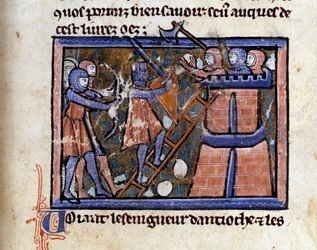 quos porrez bien savoir sen auques de
cest livrez oez;
oiant le seingneur dantioche & les